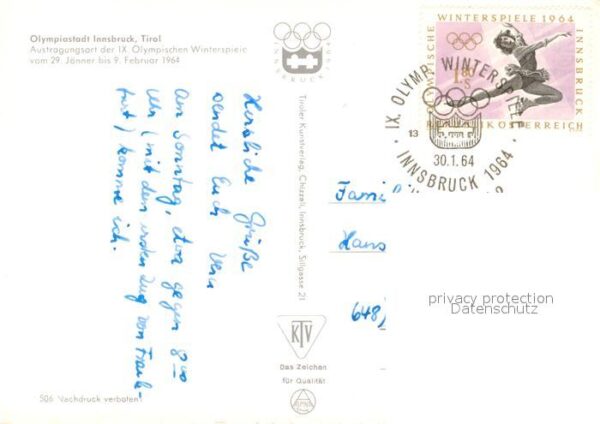 Olympiastadt Innsbruck, Tirol
Austragungsort der IX. Olympischen Winterspiele
vom 29. Jänner bis 9. Februar 1964
INNSBRUCK
1964
OLYMPISCHE WINTERSPIELE 1964 INNSBRUCK
1.80
S
REPUBLIK ÖSTERREICH
IX. OLYMP. WINTERSPIELE
13
30.1.64
INNSBRUCK 1964
Herzliche Grüße
sendet Euch
am Sonntag, etwa gegen 8 00
Uhr (mit dem ersten Zug von Frank-
furt) komme ich.
Tiroler Kunstverlag, Chizzali, Innsbruck, Sillgasse 21
Fami
Hans
648
privacy protection
Datenschutz
KTV
Das Zeichen
für Qualität
506 Nachdruck verboten